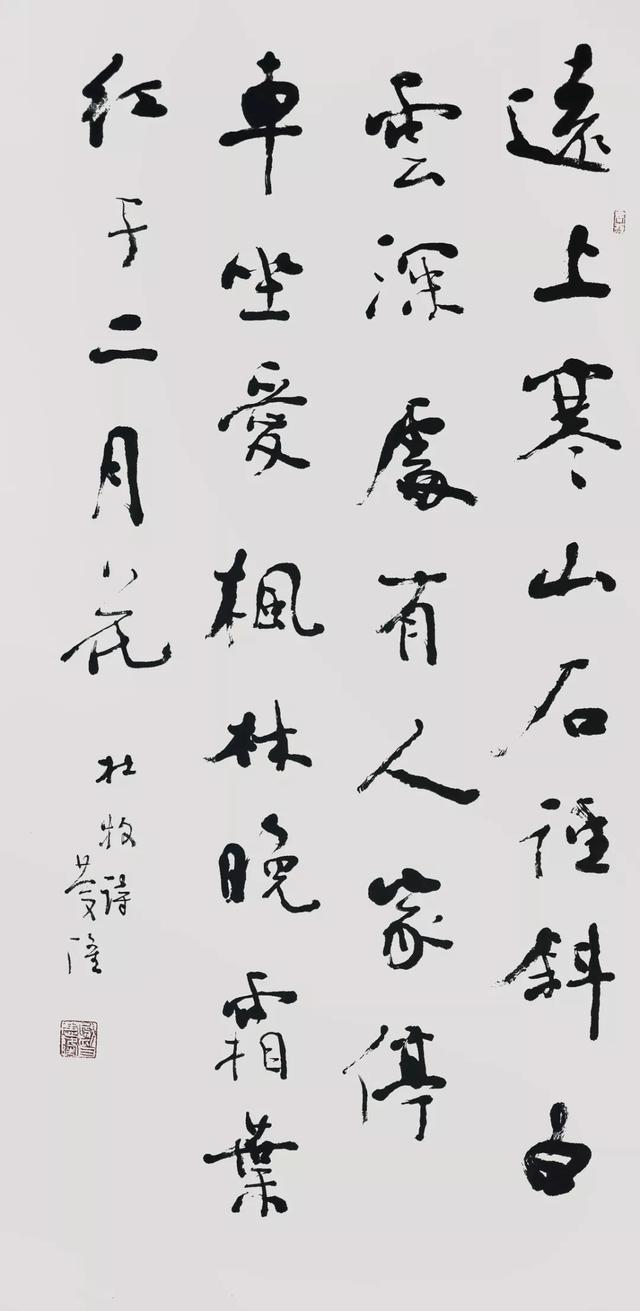 遠上寒山石徑斜白
雲深處有人家停
車坐愛楓林晚霜葉
红于二月花
杜牧詩
隆